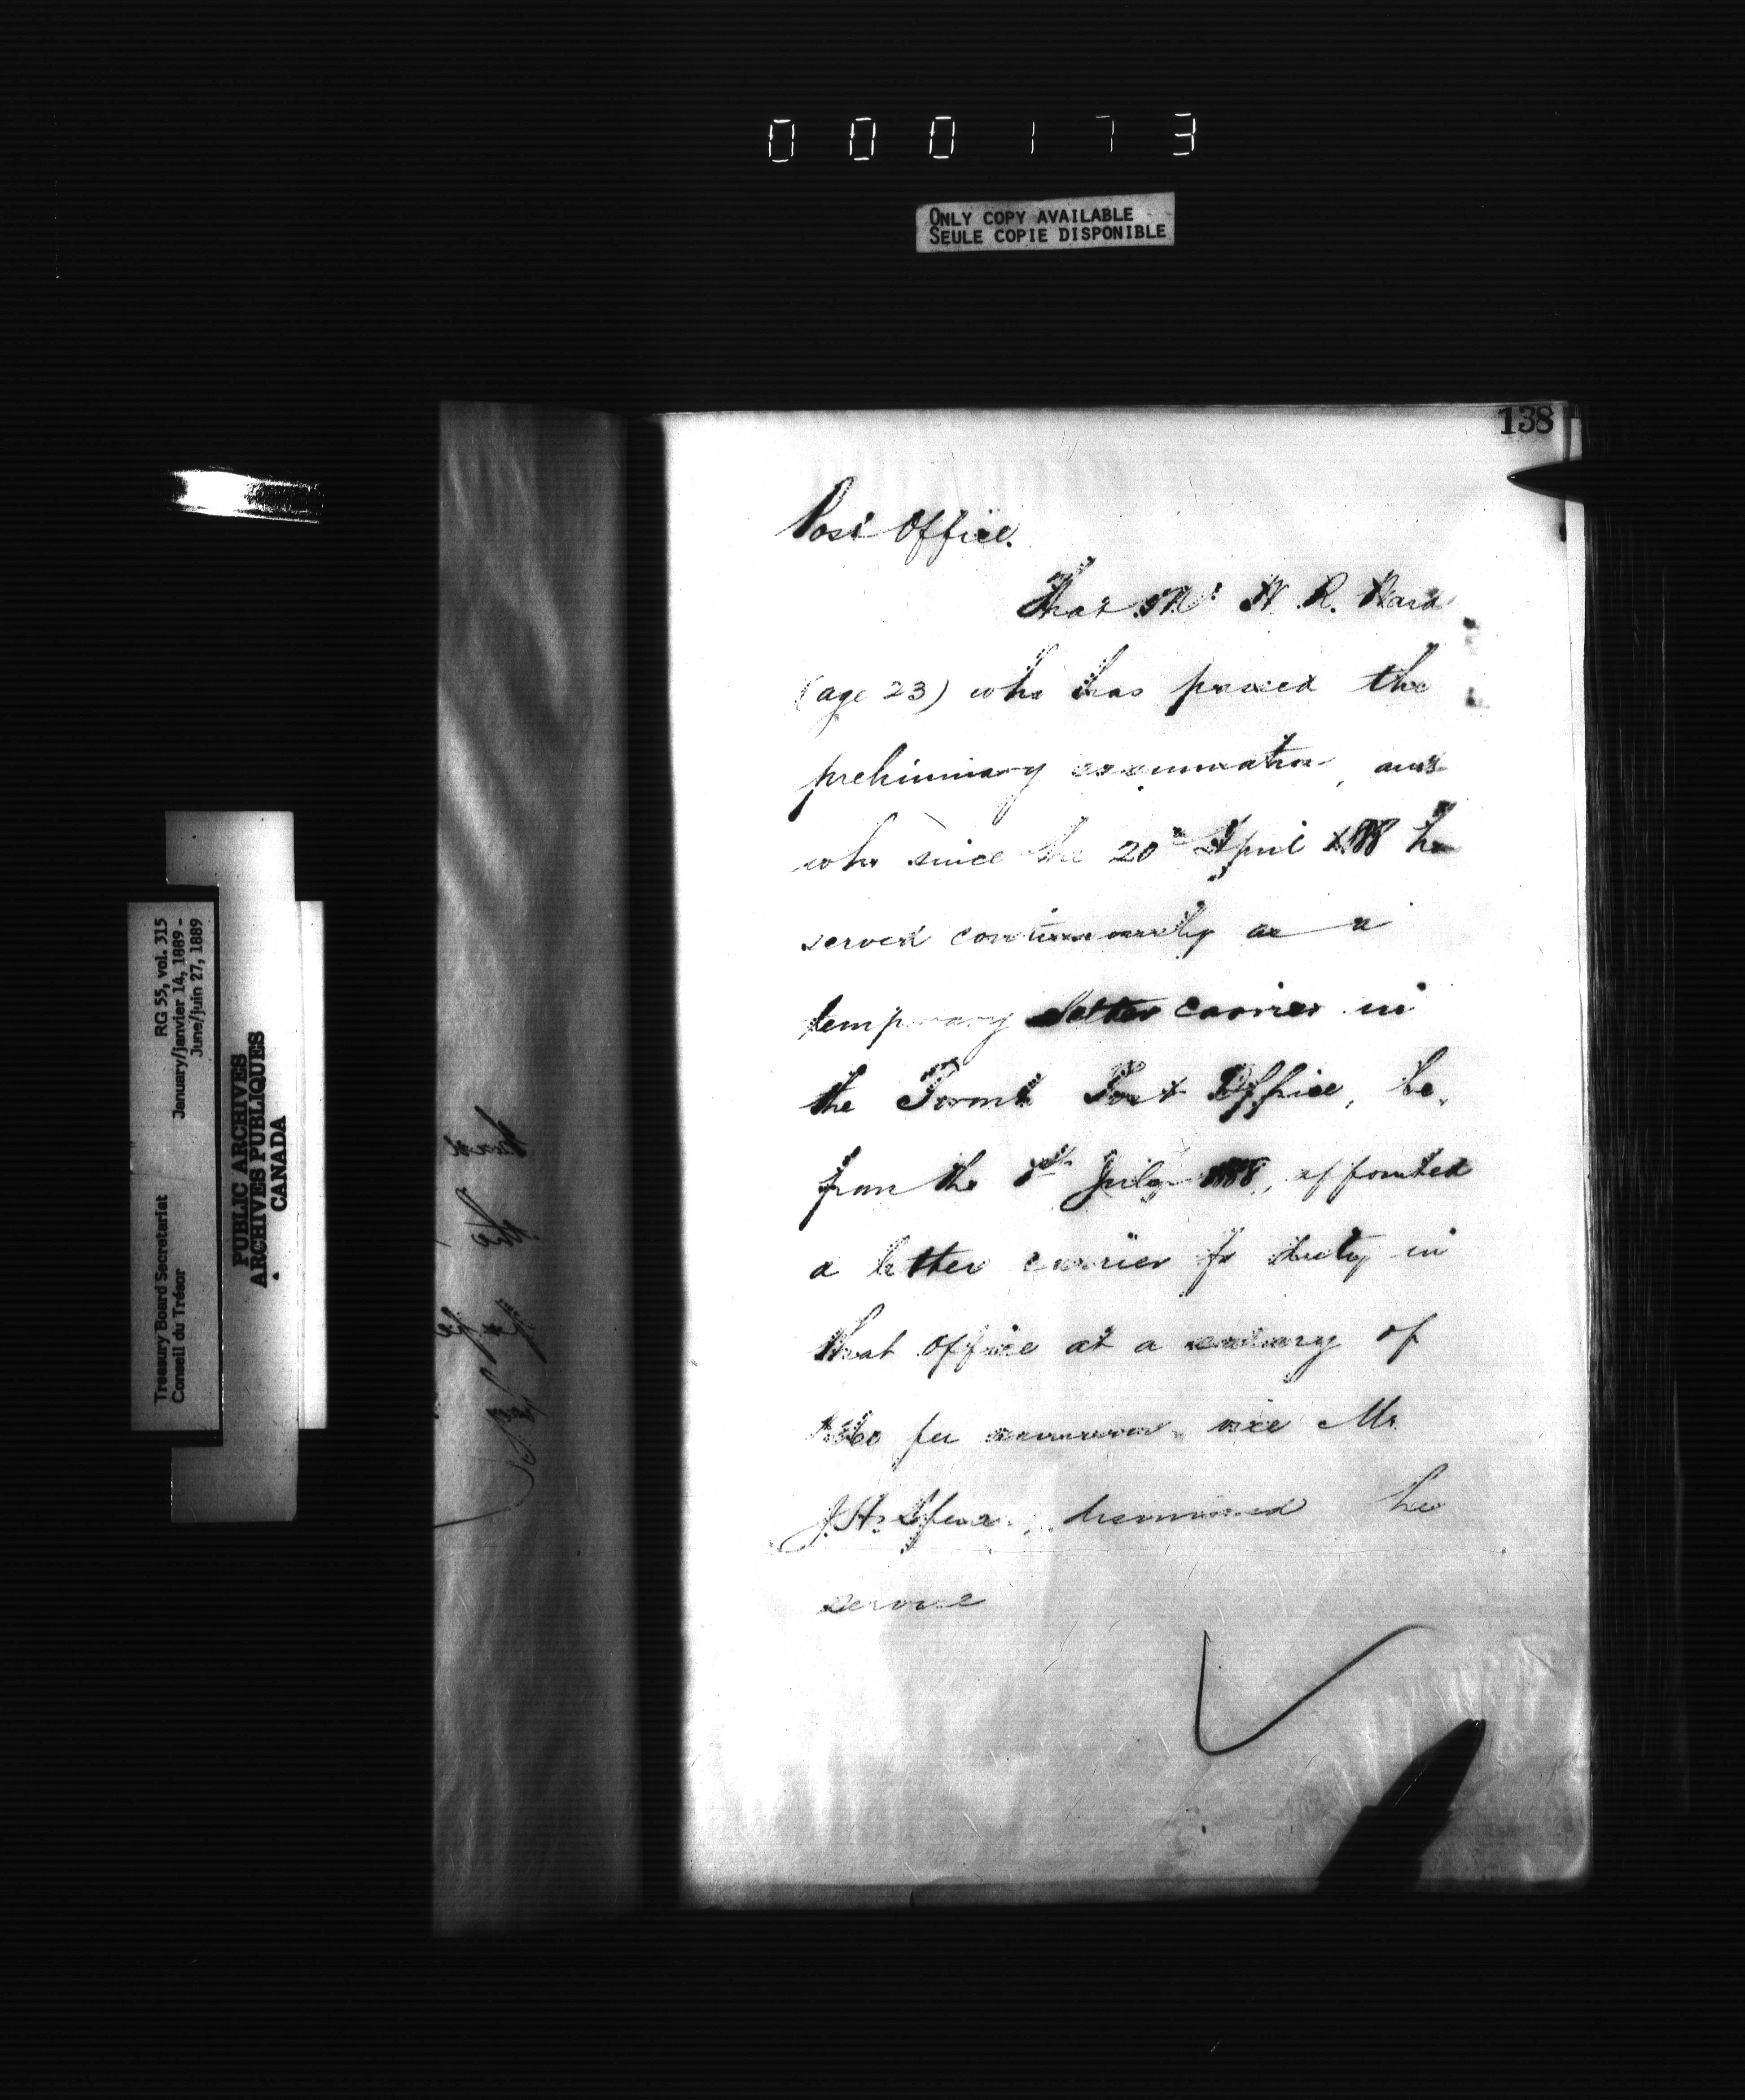 000173
ONLY COPY AVAILABLE
SEULE COPIE DISPONIBLE
138
Post Office.
That Mr W. R. Ward
(age 23) who has passed the
preliminary examination, and
who since the 20th April 1888 ha
served continuously as a
temporary letter carrier in
the Toront Post Office, be,
from the 1st July 1888, appointed
a letter carrier for duty in
that office at a salary of
per annum vice Mr
J. H. dismissed the
service
RG 55, vol. 315
January/janvier 14, 1889 -
June/juin 27, 1889
Treasury Board Secretariat
Conseil du Trésor
PUBLIC ARCHIVES
ARCHIVES PUBLIQUES
CANADA